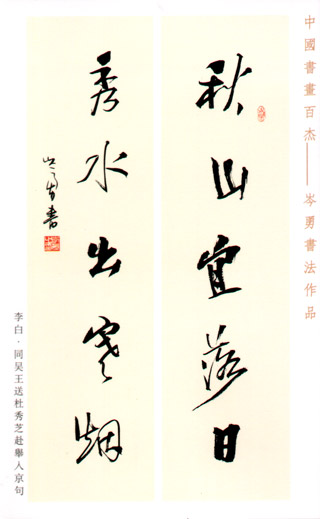 中國書畫百杰——岑勇書法作品
秋山宜落日
秀水出寒烟
岑勇書
李白·同吴王送杜秀芝赴舉入京句